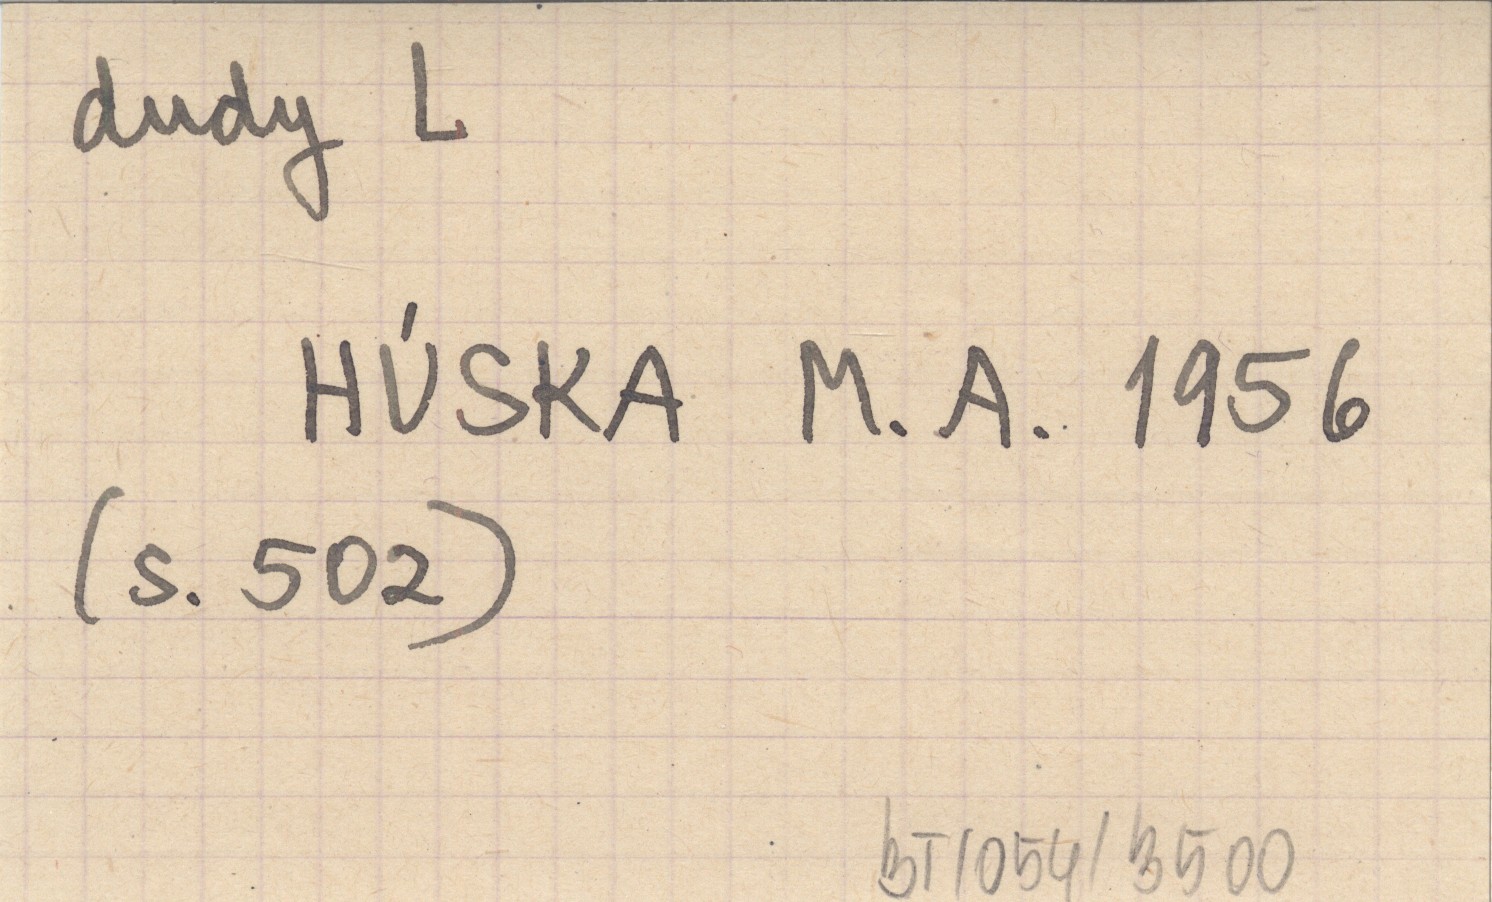 dudy L
HÚSKA M. A. 1956
(s. 502)
BT/054/3500